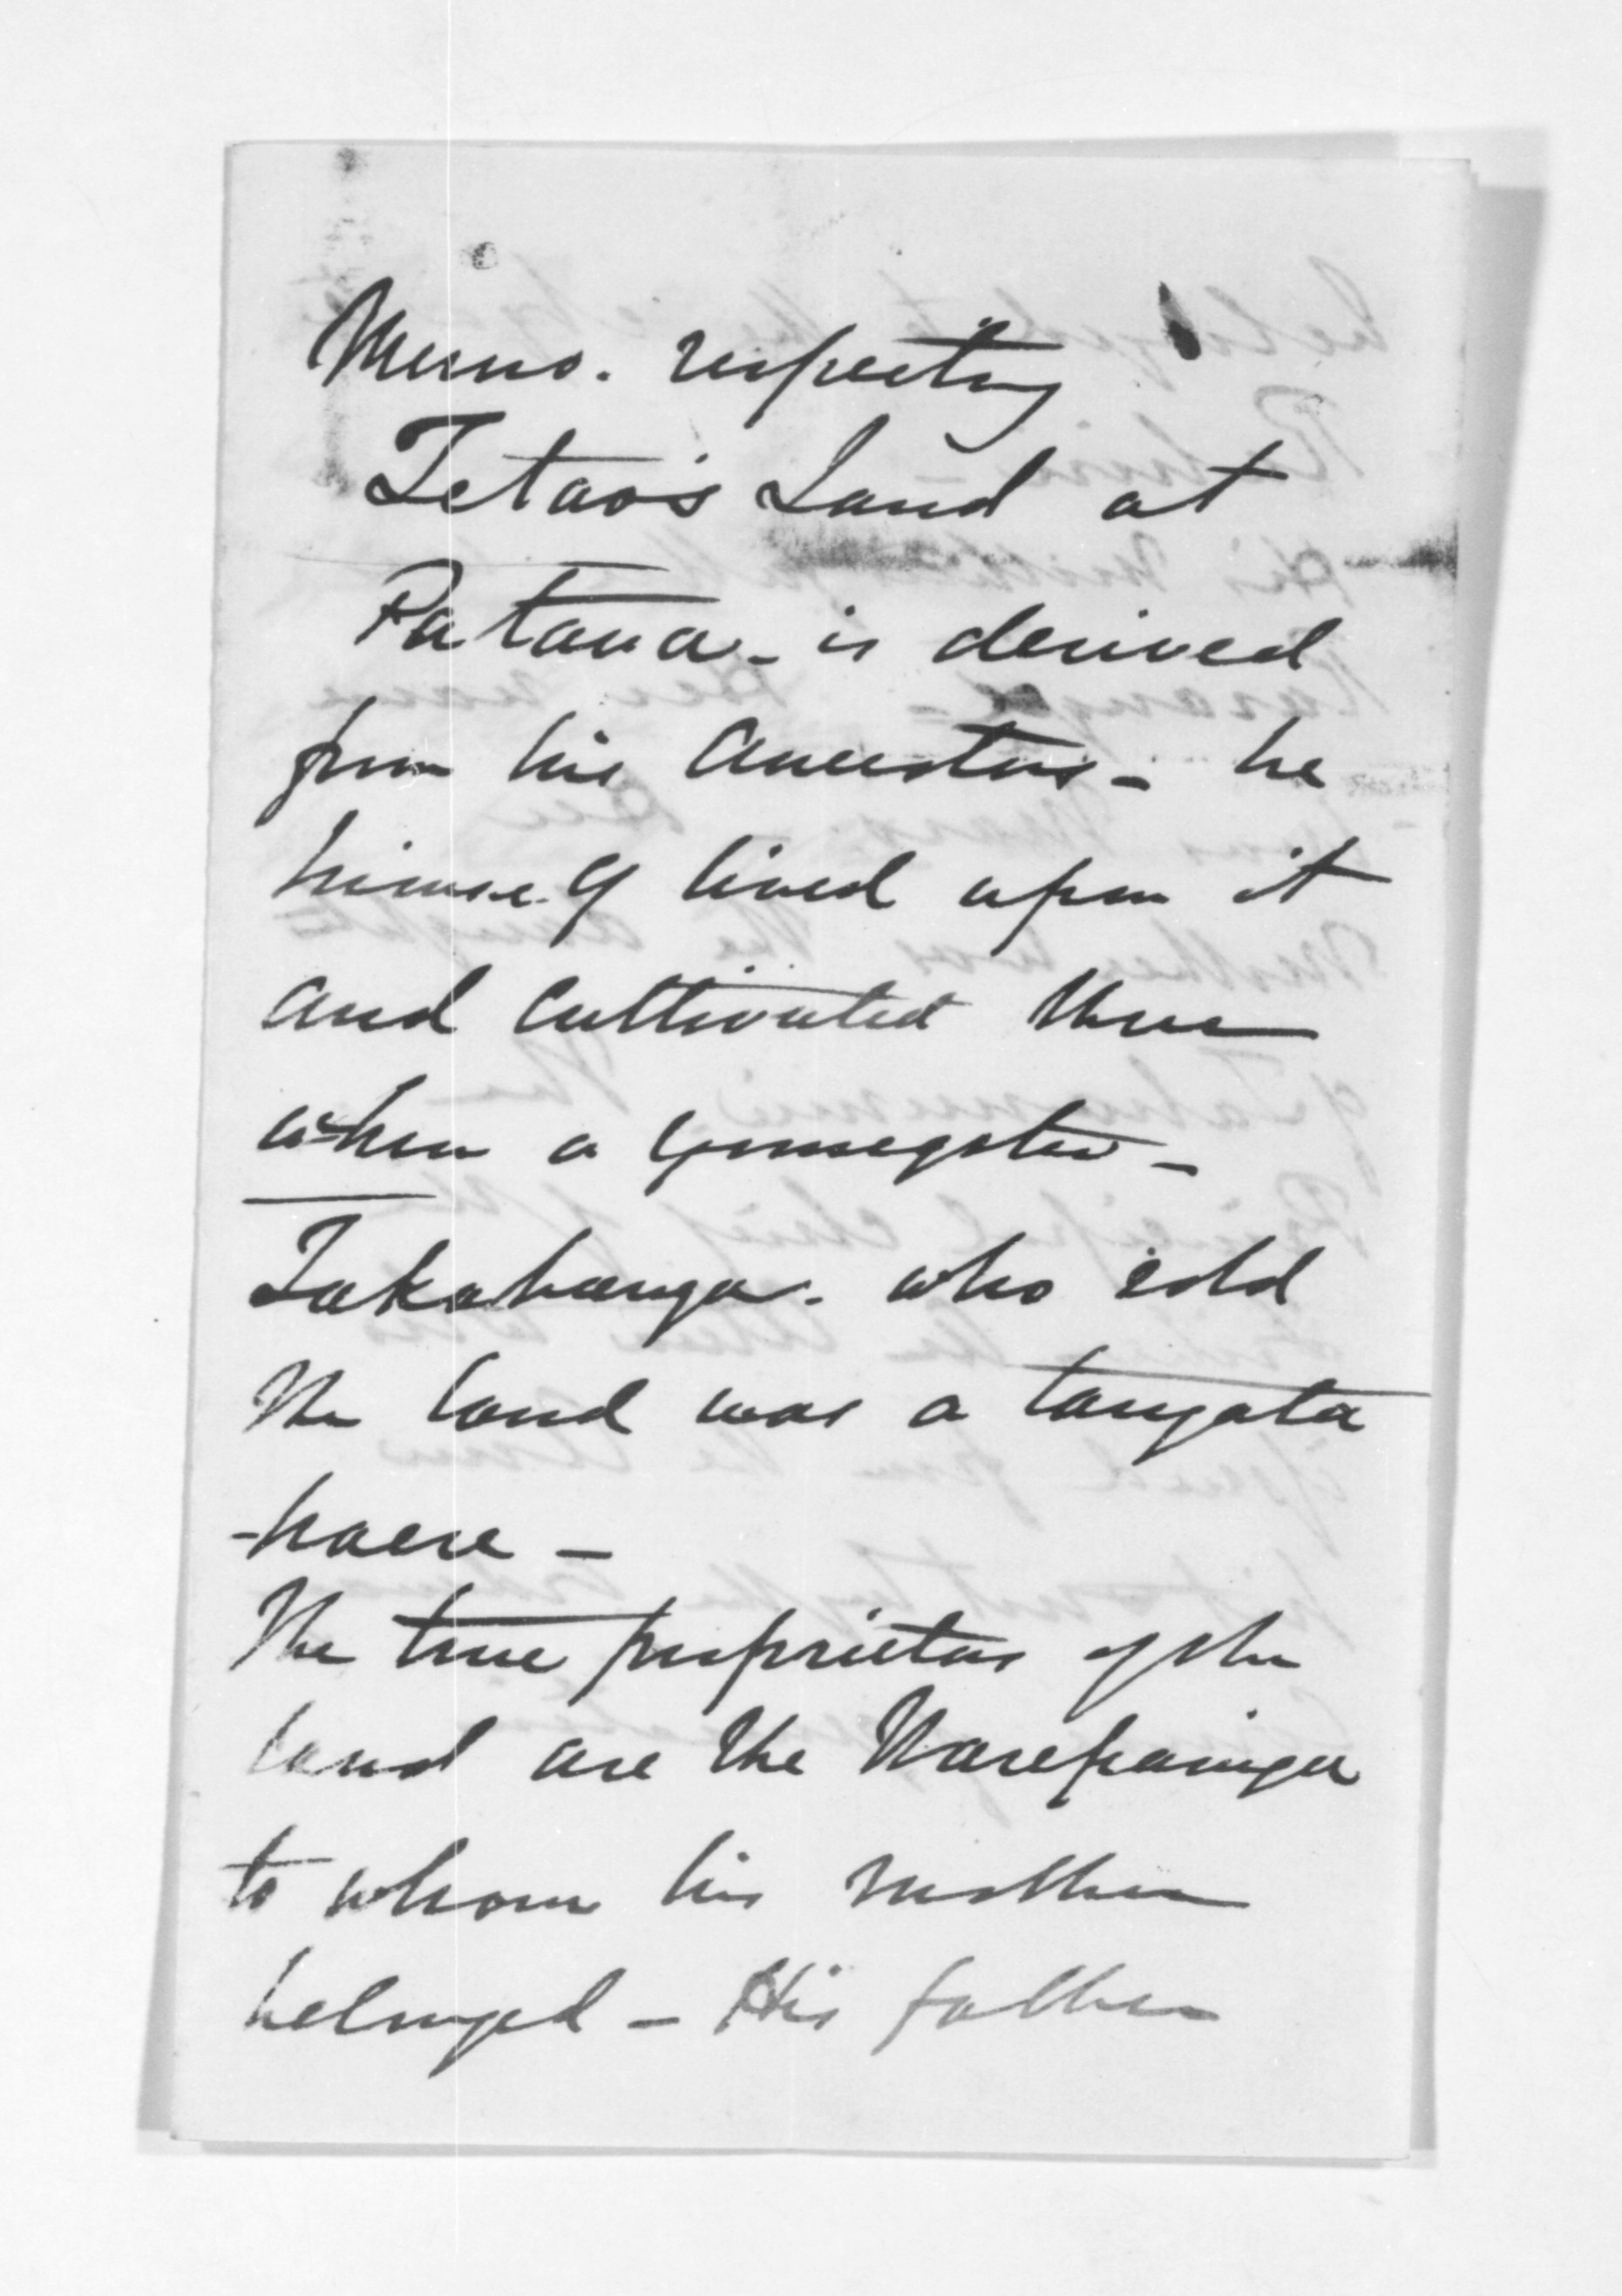 Memo. respecting
Tetao's Land at
Patana - is derived
from his Ancestors - he
himself lived upon it
and cultivated there
when a youngster -
Takabanga. who sold
the land was a tangata
-haere -
The true proprietors of the
land are the Warepainga
to whom his mother
belonged - His father